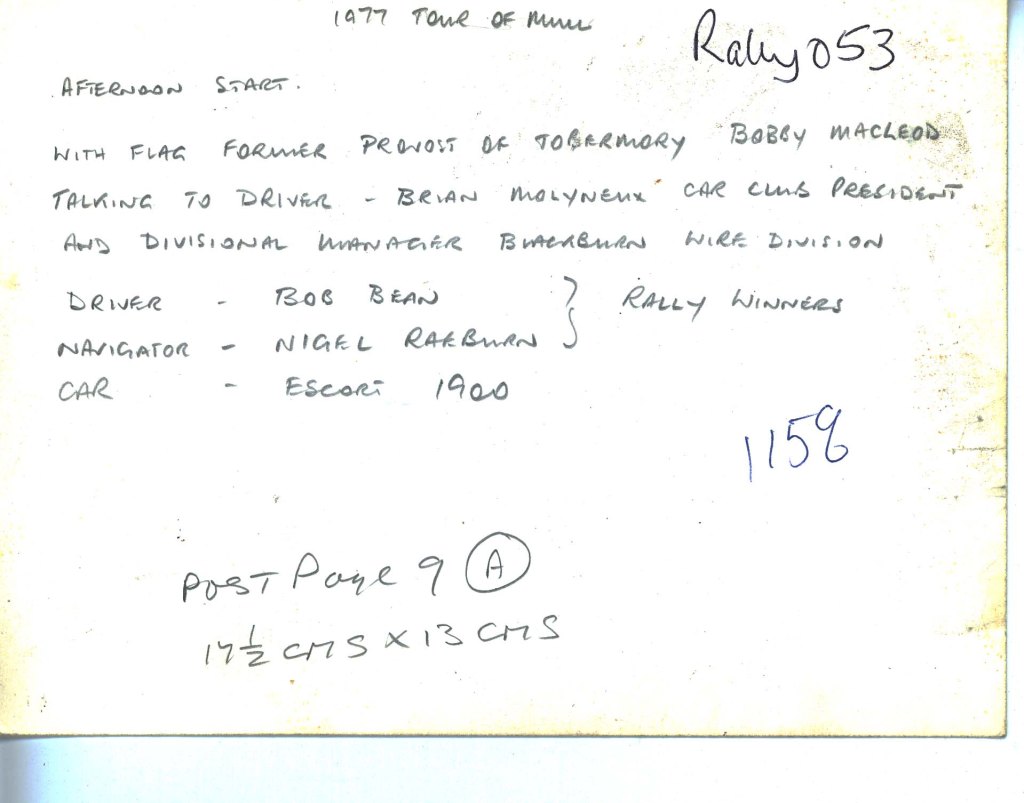 1977 TOUR OF MULL
Rally 053
AFTERNOON START.
WITH FLAG FORMER PROVOST OF TOBERMORY BOBBY MACLEOD
TALKING TO DRIVER - BRIAN MOLYNEUX CAR CLUB PRESIDENT
AND DIVISIONAL MANAGER BLACKBURN WIRE DIVISION
DRIVER - BOB BEAN } RALLY WINNERS
NAVIGATOR - NIGEL RAEBURN
CAR - ESCORT 1900
1159
POST Page 9 A
17 1/2 CMS X 13 CMS